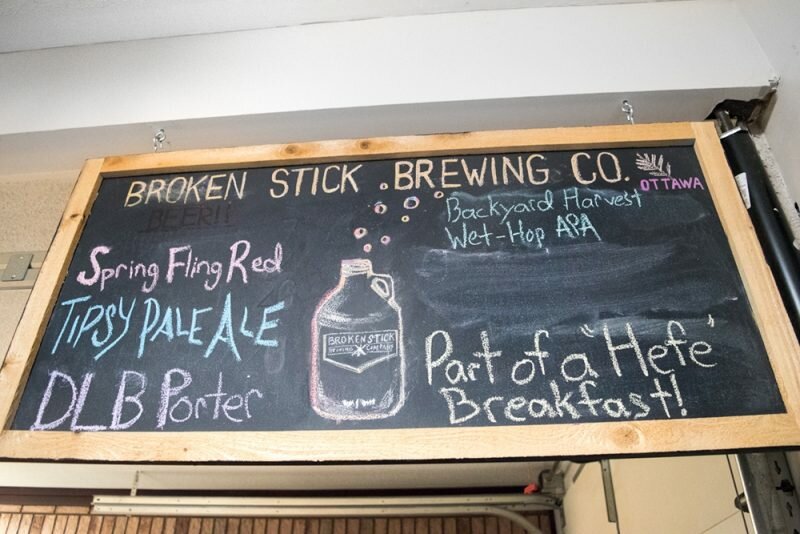 BROKEN STICK BREWING CO.
OTTAWA
BEER!!
Spring Fling Red
TIPSY PALE ALE
DLB Porter
BROKEN STICK
BREWING COMPANY
Backyard Harvest
Wet-Hop APA
Part of a "Hefe"
Breakfast!